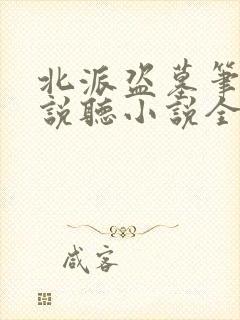 北派盗墓筆
說聽小說全
咸客